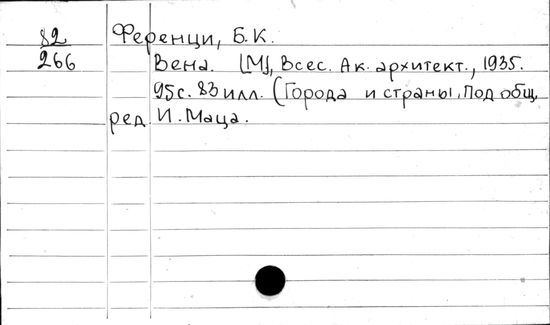 82 Ференци, Б.К.
266 Вена. [М], Всес. Ак. архитект., 1935.
95с. 83 илл. (Города и страны. Под общ.
ред. И. Маца.